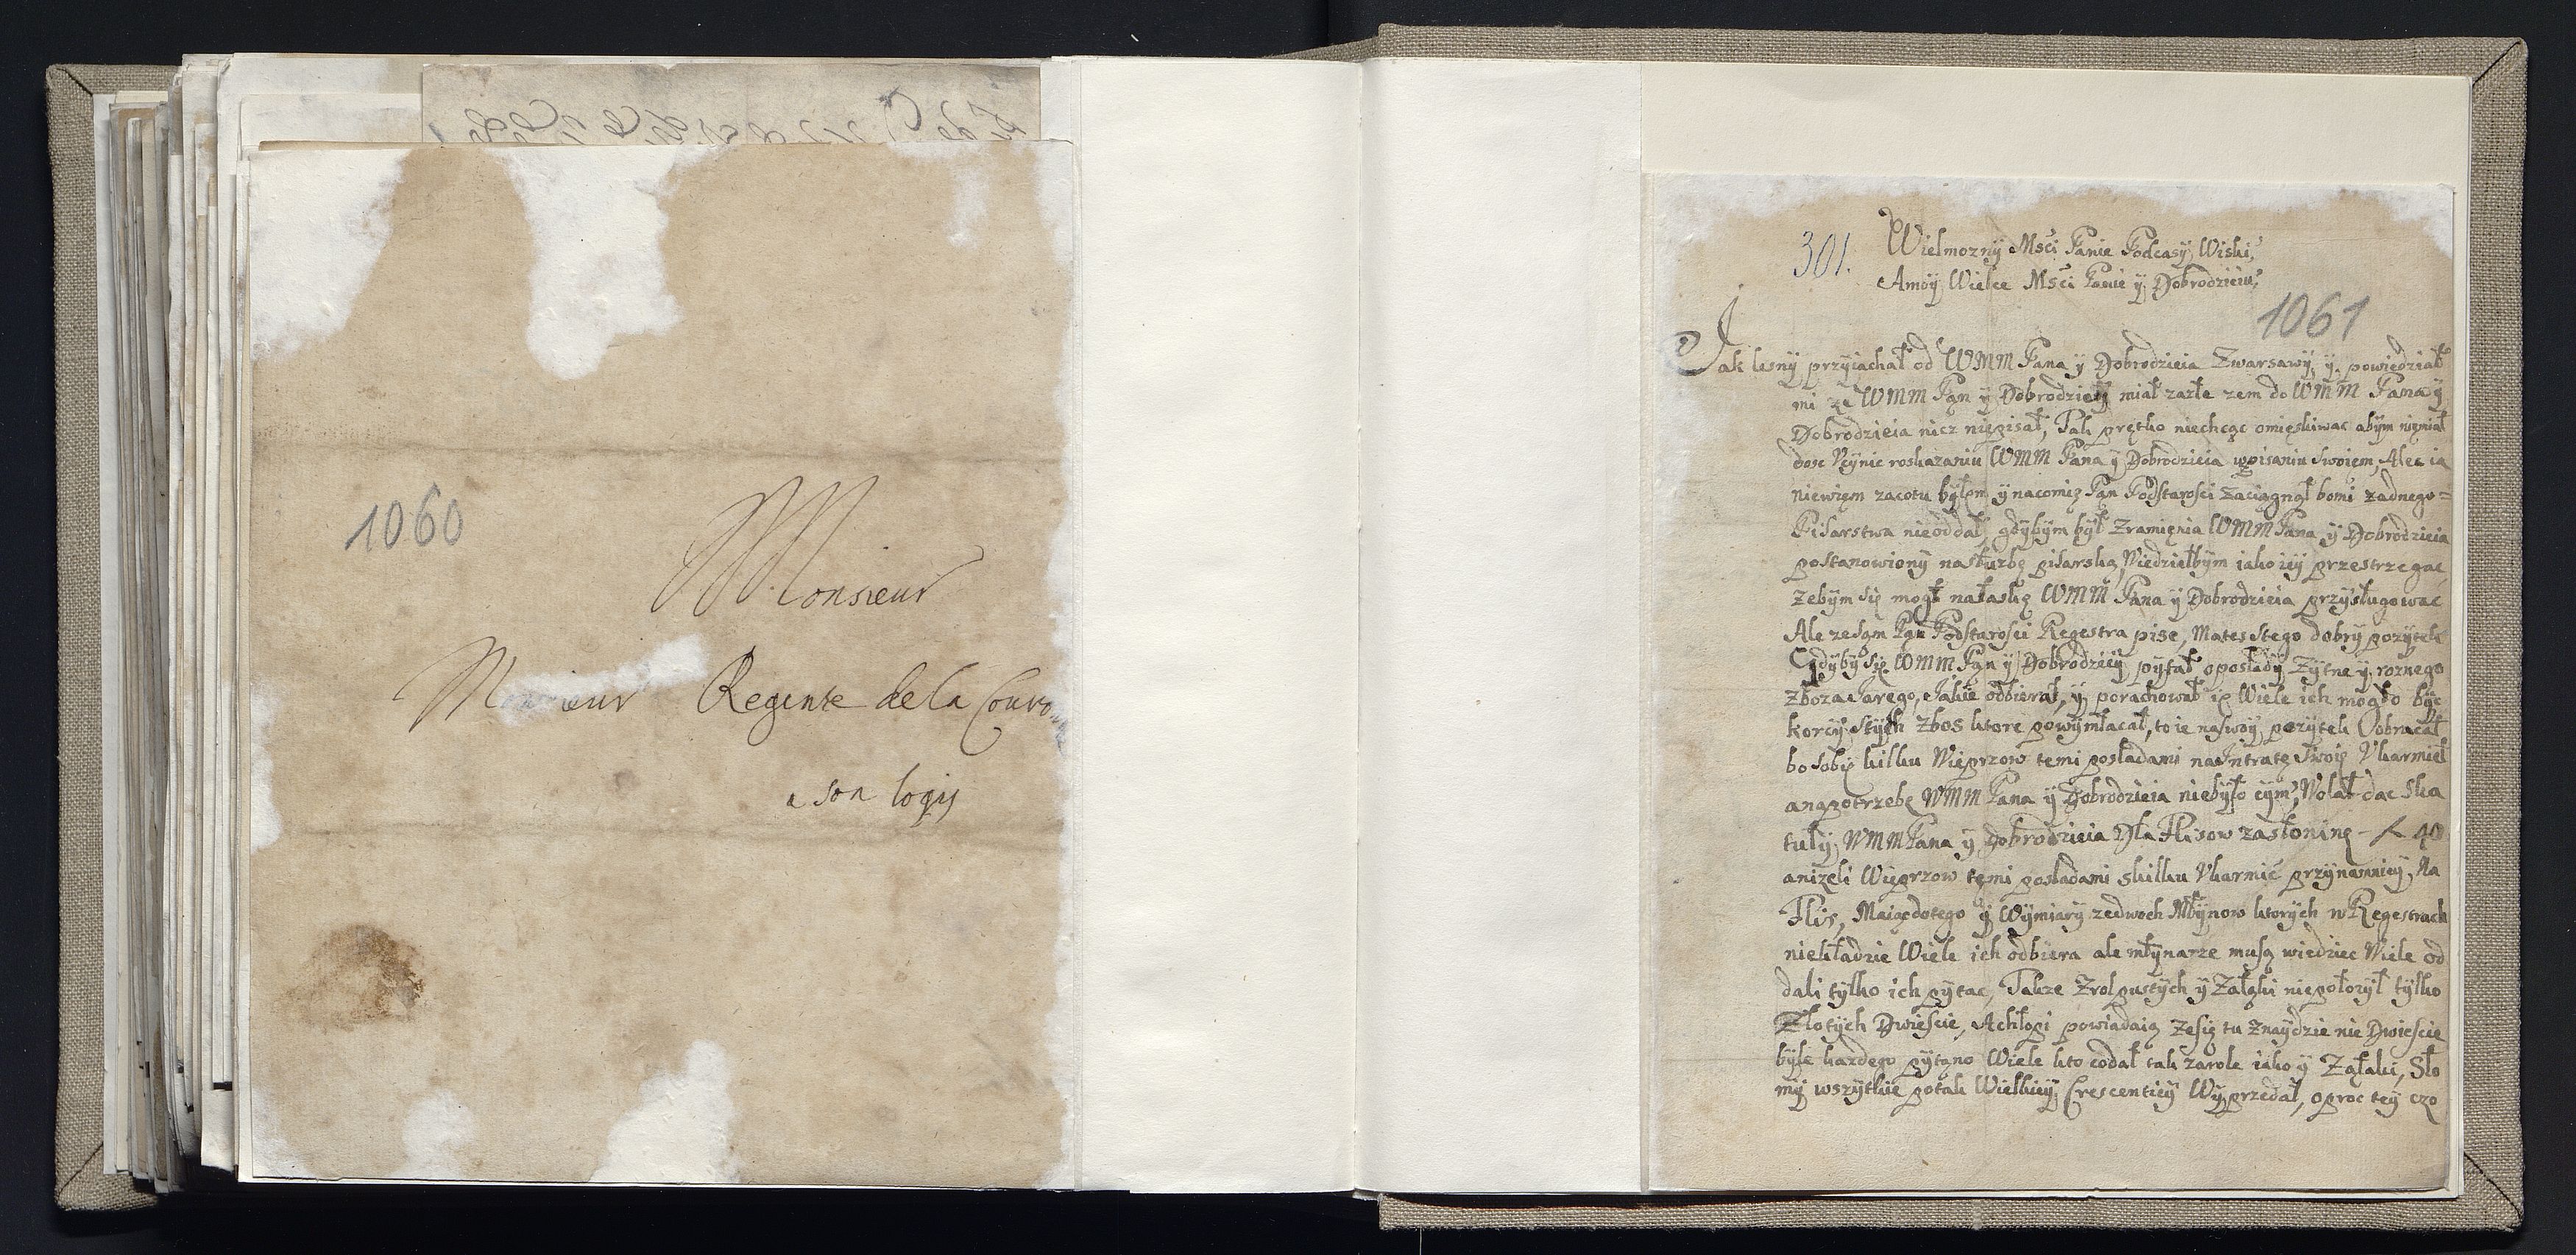 1060
Monsieur
Monsieur Regente de la Couro
a son logis
301.
Wielmozny Msci Panie Podczasy Wiski,
Amoy Wielce Msci Panie y Dobrodzieiu,
1061
Jak lesny przyiachał od WMM Pana y Dobrodzieia Zwarsawy, y, powiedział
mi ze WMM Pan y Dobrodziey miał zazłe zem do WMM Pana y
Dobrodzieia nicz niepisał, Tak prętko niechcąc omięskiwac abym niemiał
dosc Vcynic roskazaniu WMM Pana y Dobrodzieia wpisaniu swoiem, Alec ia
niewięm zacotu byłem y nacomię Pan Podstarosci zaciągnął bomi zadnego=
Pisarstwa nieoddał, gdybym był Zramięnia WMM Pana y Dobrodzieia
postanowiony nasłuzbę pisarską, Wiedziałbym iako iey przestrzegac,
zebym się mogł nałaskę WMM Pana y Dobrodzieia przysługowac
Ale zesąm Pan Podstarosci Regestra pise, Mates stego dobry pozytek
Gdyby się WMM Pan y Dobrodziey pytał oposłady Zytne y roznego
Zboza Jarego, Jakie odbierał, y porachował ie Wiele ich mogło byc
korcy Stych zbos ktore powymłacał, to ie naswoy pozytek Cobracał
bo sobie kilku Wieprzow temi posładami na Intratę Swoię Vkarmieł
anapotrzebę WMM Pana y Dobrodzieia niebyło cym, Wolał dac ska
tuły, WMM Pana y Dobrodzieia Dla Flisow zasłoninę - 40
anizeli Wieprzow temi posładami skilku Vkarmić przynamniey, Na
Flis, Maiąc dotego y Wymiary zedwoch Młynow ktorych w Regestrach
niekładzie Wiele ich odbiera ale młynarze musą wiedziec Wiele od
dali tylko ich pytac, Takze Zrolpustych y Załąki niepołozył tylko
Złotych Dwiescie, Achłopi powiadaią zesię tu Znaydzie nie Dwiescie
byle kazdego pytano Wiele kto codał tak zarole iako y Załaki, Sło
my wszytkie potak Wielkiey Crescentiey Wyprzedał, oproc tey czo